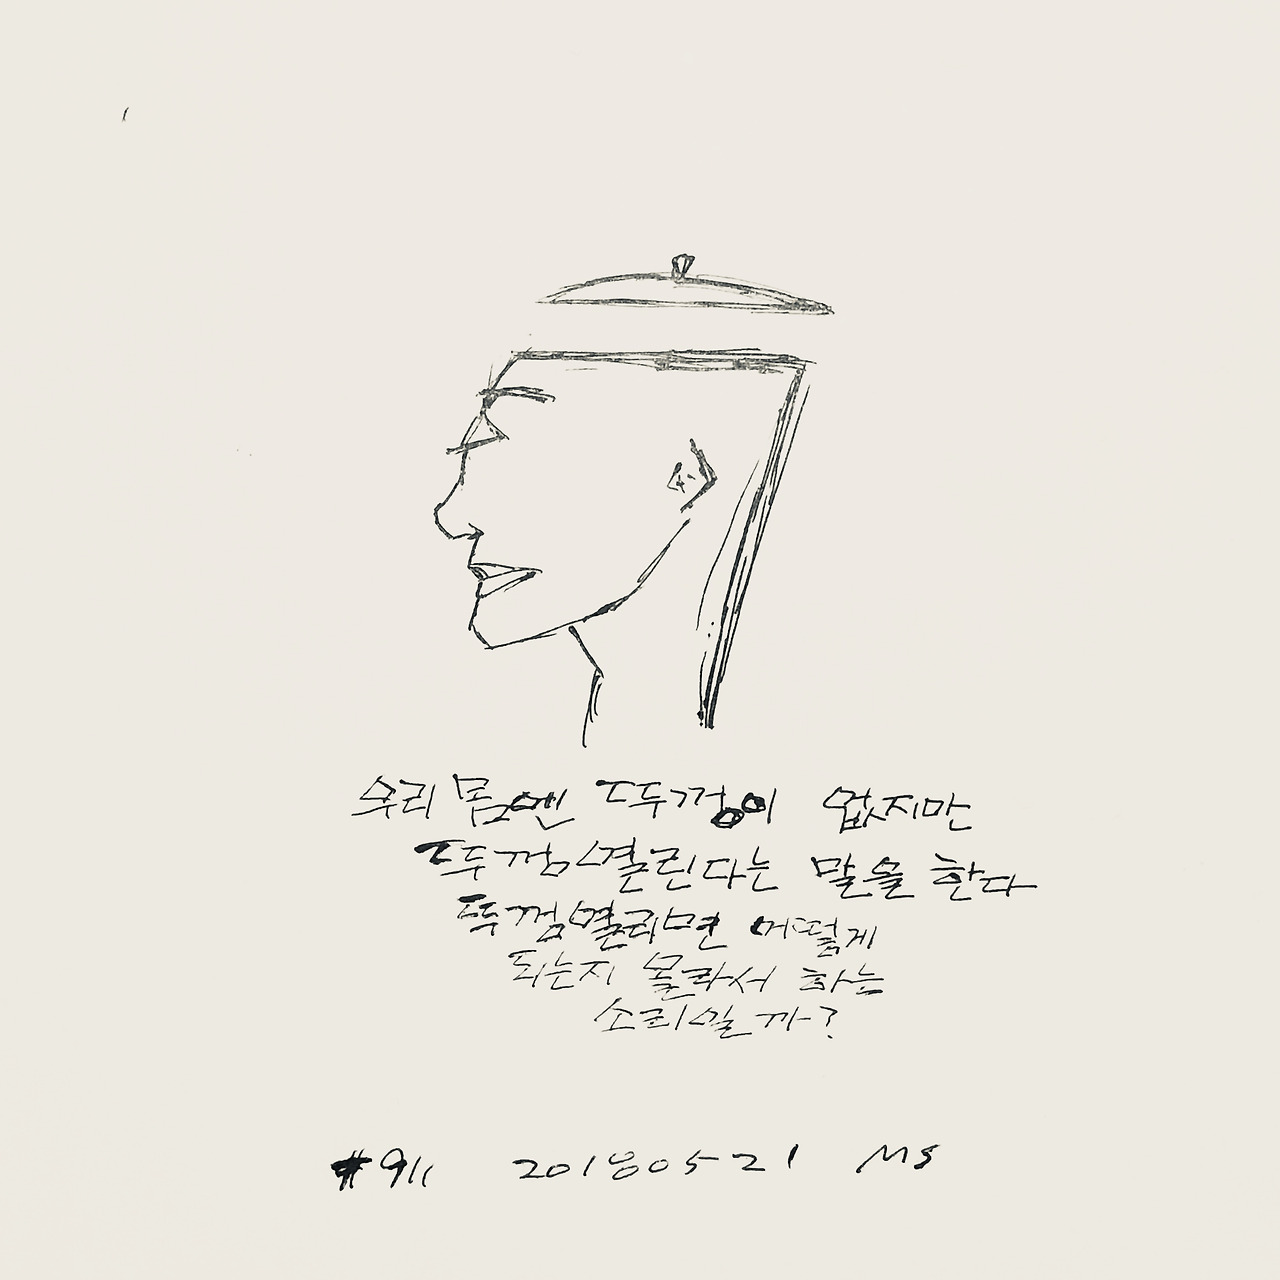 우리 몸엔 뚜껑이 없지만
뚜껑열린다는 말을 한다
뚜껑열리면 어떻게
되는지 몰라서 하는
소리일까?
#911 20180521 MS